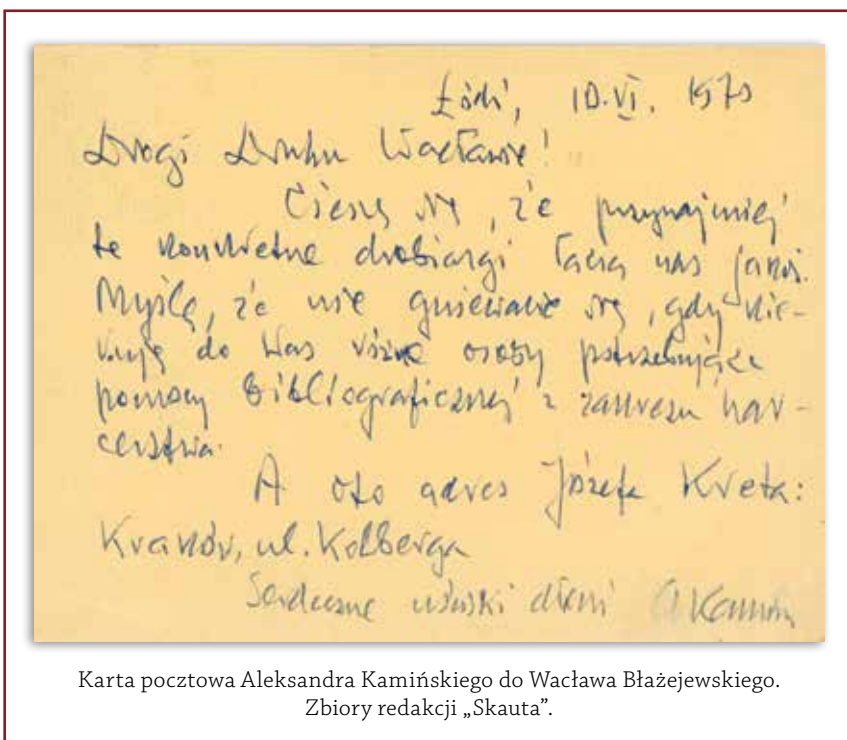 Łódź, 10.VI. 1970
Drogi Druhu Wacławie!
Cieszę się, że przynajmniej
te konkretne drobiazgi łączą nas jakoś.
Myślę, że nie gniewacie się, gdy kie-
ruję do Was różne osoby potrzebujące
pomocy bibliograficznej z zakresu har-
cerstwa.
A oto adres Józefa Kreta:
Kraków, ul. Kolberga
Serdeczne uściski dłoni AKamiń
Karta pocztowa Aleksandra Kamińskiego do Wacława Błażejewskiego.
Zbiory redakcji „Skauta”.